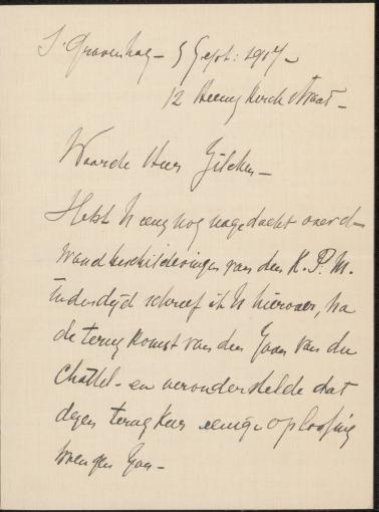 S' Gravenhag – 5 Sept: 1917 –
12 Heemskerckstraat –
Waarde Heer Gilcher –
Hebt U eenig nog nagedacht over d
wandbeschilderingen van den K. P. M.
indertijd schreef ik U hierover, na
de terugkomst van den Heer Van der
Chattel – en veronderstelde dat
dezen terugkeer eenige oplossing
brengen